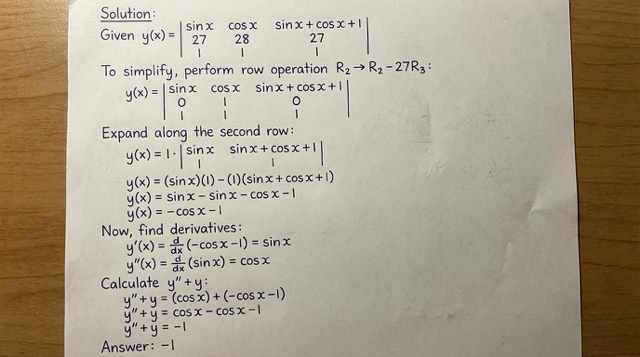 Solution:
Given y(x) = | sin x cos x sin x + cos x + 1 |
27 28 27
1 1 1
To simplify, perform row operation R₂ → R₂ - 27R₃:
y(x) = | sin x cos x sin x + cos x + 1 |
0 1 0
1 1 1
Expand along the second row:
y(x) = 1 · | sin x sin x + cos x + 1 |
1 1
y(x) = (sin x)(1) - (1)(sin x + cos x + 1)
y(x) = sin x - sin x - cos x - 1
y(x) = - cos x - 1
Now, find derivatives:
y'(x) = d/dx (- cos x - 1) = sin x
y''(x) = d/dx (sin x) = cos x
Calculate y'' + y:
y'' + y = (cos x) + (- cos x - 1)
y'' + y = cos x - cos x - 1
y'' + y = -1
Answer: -1